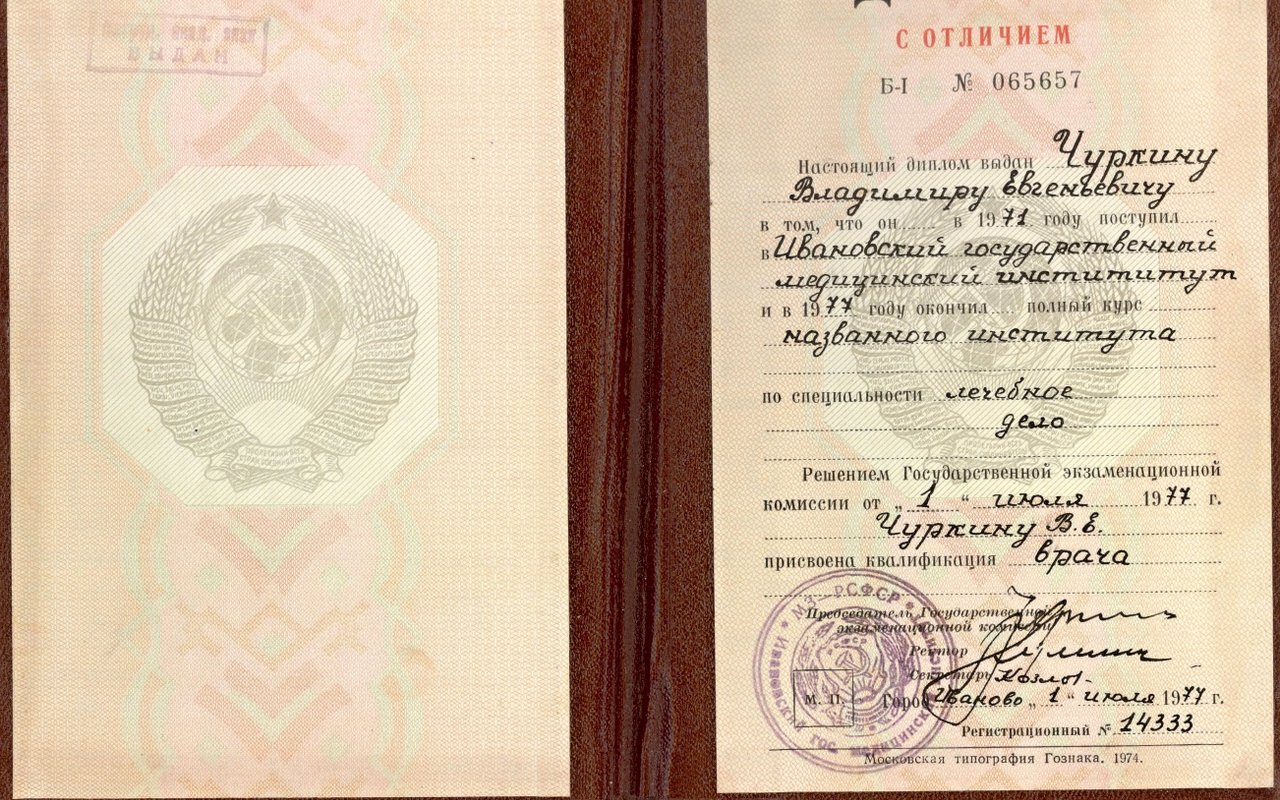 ВЫДАН
С ОТЛИЧИЕМ
Б-I № 065657
Настоящий диплом выдан Чуркину
Владимиру Евгеньевичу
в том, что он в 1971 году поступил
в Ивановский государственный
медицинский институт
и в 1977 году окончил полный курс
названного института
по специальности лечебное
дело
Решением Государственной экзаменационной
комиссии от „ 1 “ июля 1977 г.
Чуркину В. Е.
присвоена квалификация врача
Председатель Государственной
экзаменационной комиссии
Ректор
Секретарь Козлов
М. П. Город Иваново „ 1 “ июля 1977 г.
Регистрационный № 14333
Московская типография Гознака. 1974.